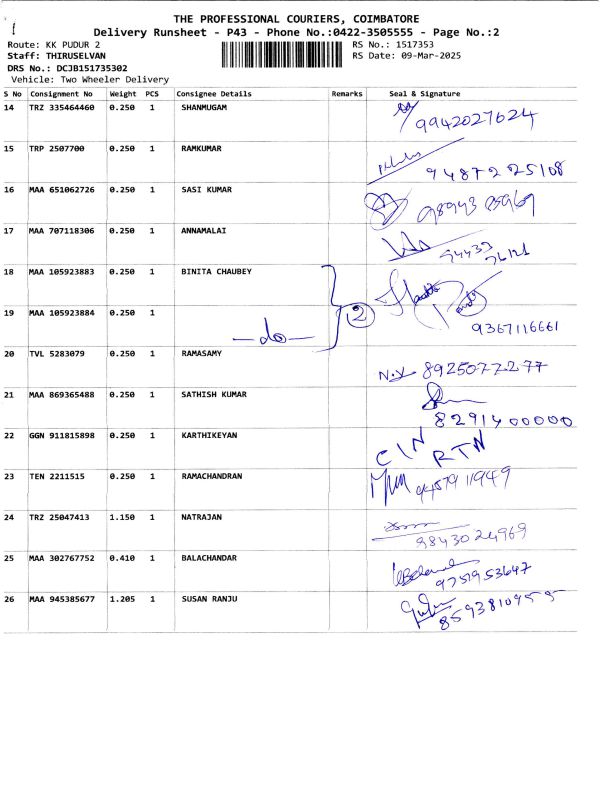 THE PROFESSIONAL COURIERS, COIMBATORE
Delivery Runsheet - P43 - Phone No.:0422-3505555 - Page No.:2
Route: KK PUDUR 2 RS No.: 1517353
Staff: THIRUSELVAN RS Date: 09-Mar-2025
DRS No.: DCJB151735302
Vehicle: Two Wheeler Delivery
S No Consignment No Weight PCS Consignee Details Remarks Seal & Signature
14 TRZ 335464460 0.250 1 SHANMUGAM
9942027624
15 TRP 2507700 0.250 1 RAMKUMAR
94872 25108
16 MAA 651062726 0.250 1 SASI KUMAR
17 MAA 707118306 0.250 1 ANNAMALAI
18 MAA 105923883 0.250 1 BINITA CHAUBEY
19 MAA 105923884 0.250 1
—do— 2
9367116661
20 TVL 5283079 0.250 1 RAMASAMY
N.Y 8925077277
21 MAA 869365488 0.250 1 SATHISH KUMAR
8291400000
22 GGN 911815898 0.250 1 KARTHIKEYAN
CIN RTN
23 TEN 2211515 0.250 1 RAMACHANDRAN
24 TRZ 25047413 1.150 1 NATRAJAN
9843024969
25 MAA 302767752 0.410 1 BALACHANDAR
9751953647
26 MAA 945385677 1.205 1 SUSAN RANJU